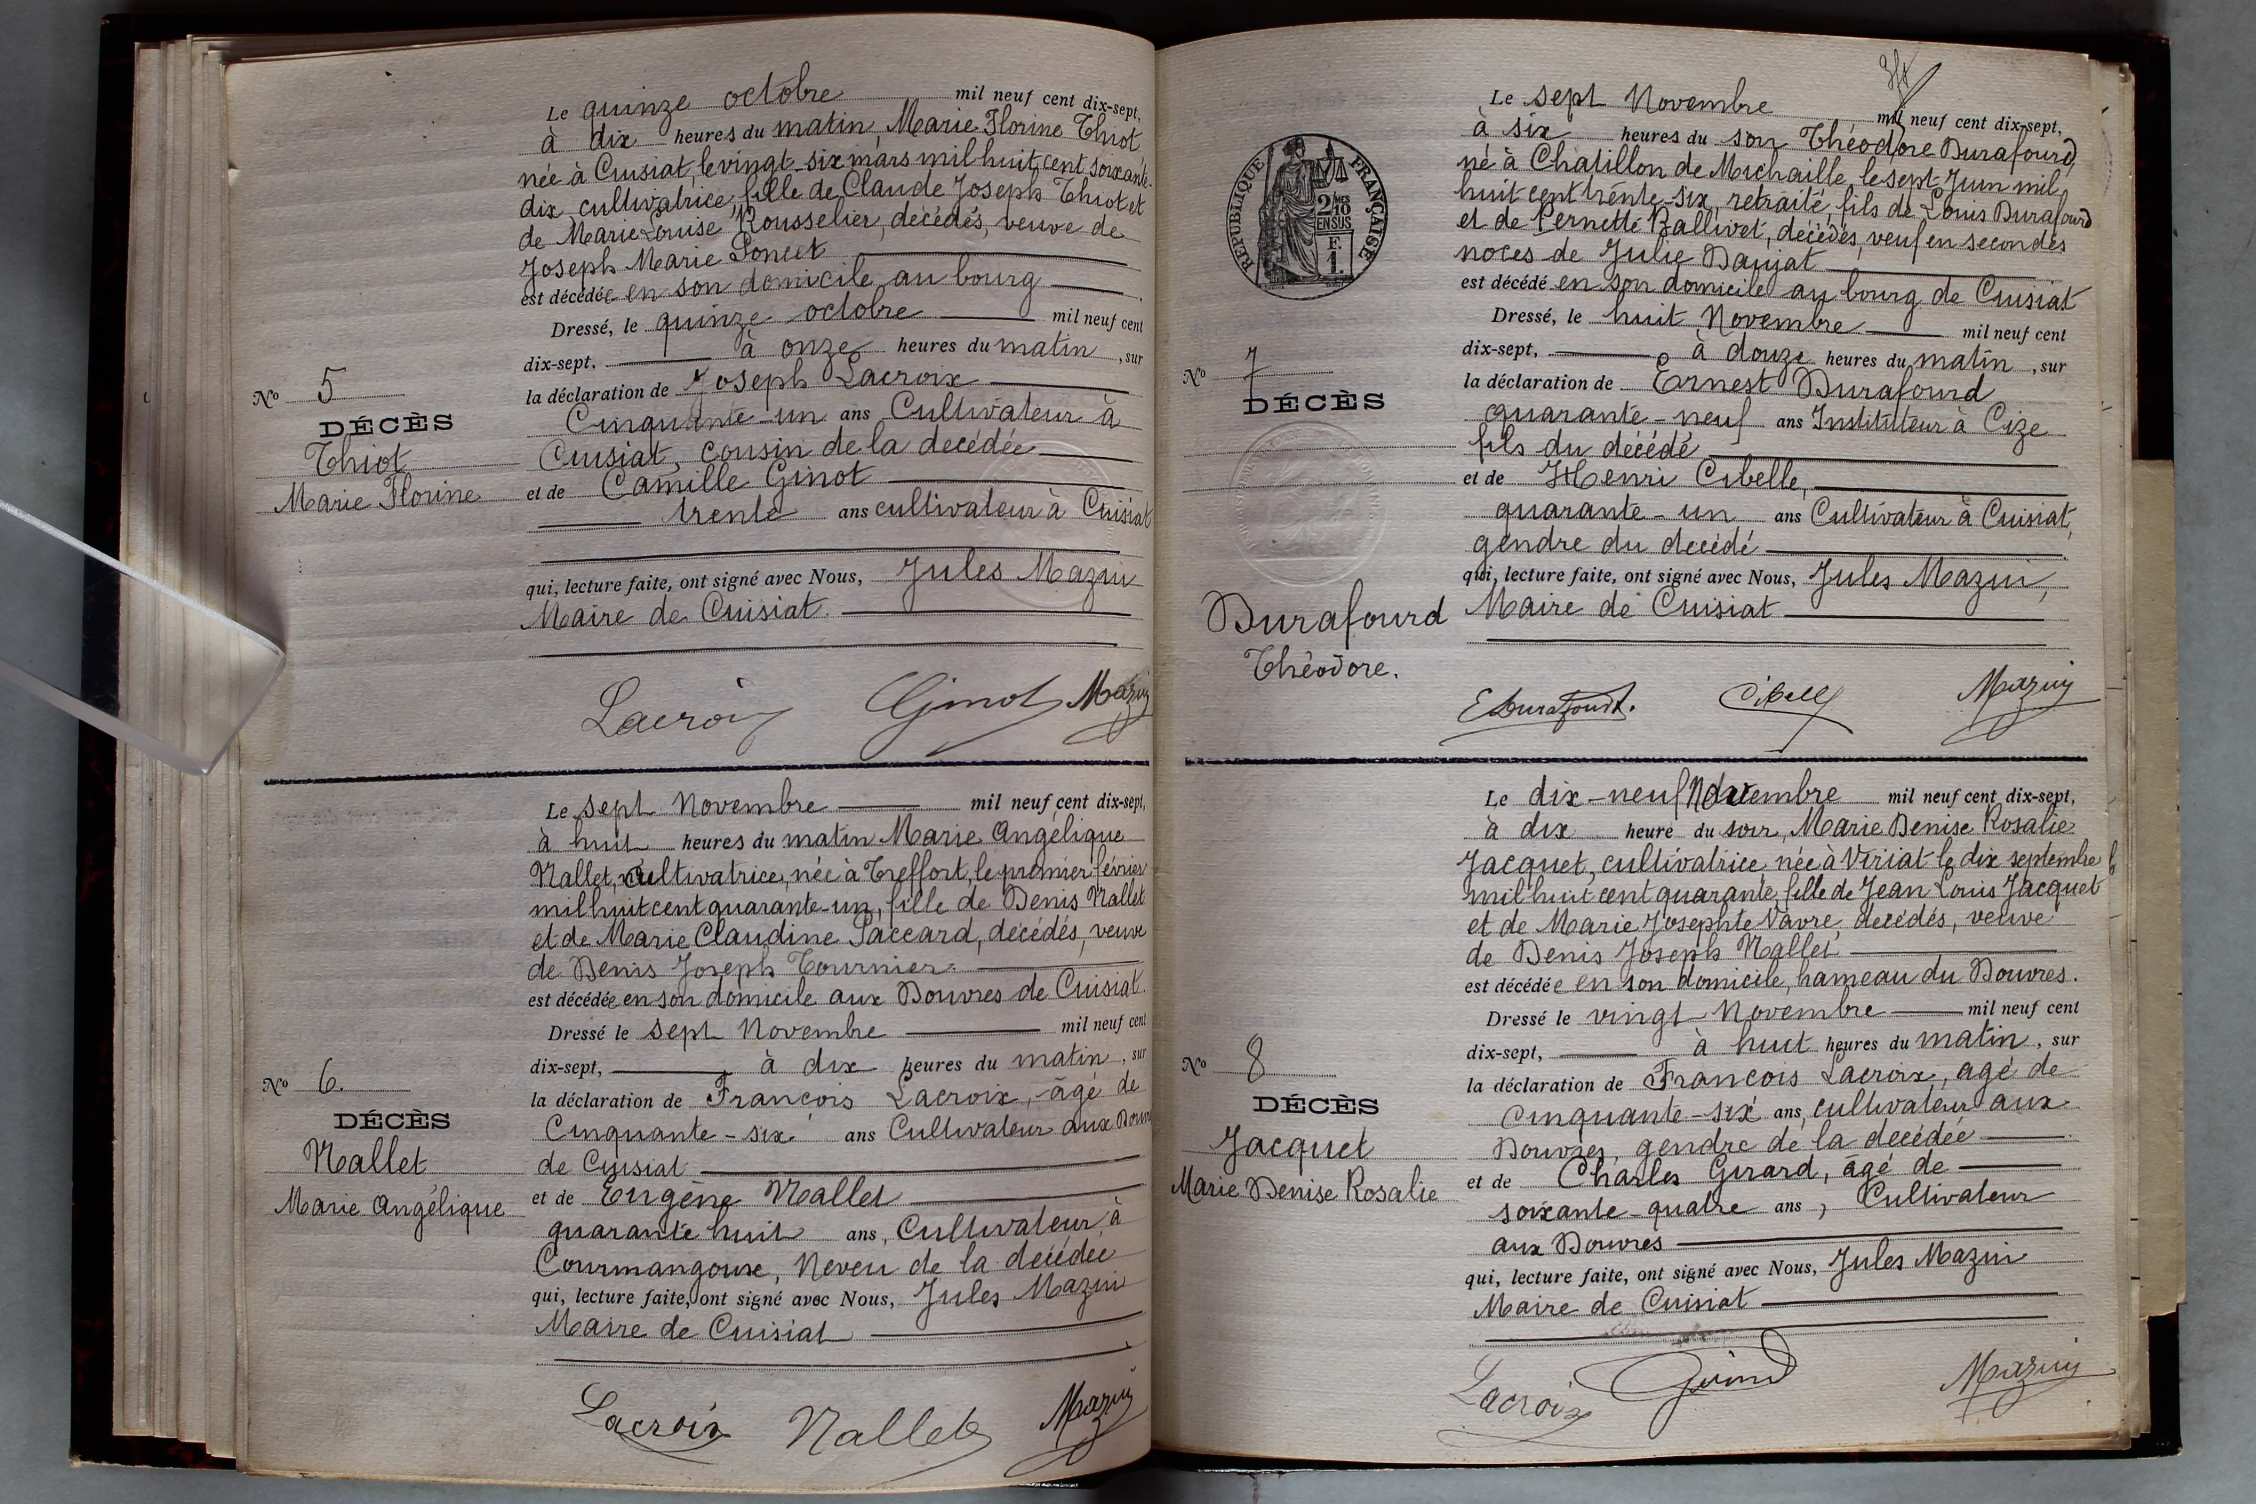 Le quinze octobre mil neuf cent dix-sept,
à dix heures du matin, Marie Florine Thiot
née à Cuisiat, le vingt-six mars mil huit cent soixante-
dix, cultivatrice, fille de Claude Joseph Thiot et
de Marie Louise Rousselier, décédés, veuve de
Joseph Marie Poncet
est décédée en son domicile au bourg
Dressé, le quinze octobre mil neuf cent
dix-sept, à onze heures du matin, sur
la déclaration de Joseph Lacroix
Cinquante-un ans Cultivateur à
Cuisiat, cousin de la décédée
et de Camille Ginot
trente ans cultivateur à Cuisiat
qui, lecture faite, ont signé avec Nous, Jules Mazui
Maire de Cuisiat.
No 5
DÉCÈS
Thiot
Marie Florine
Lacroix Ginot Mazuy
Le sept Novembre mil neuf cent dix-sept,
à huit heures du matin Marie Angélique
Nallet, cultivatrice, née à Treffort, le premier février
mil huit cent quarante-un, fille de Denis Nallet
et de Marie Claudine Paccard, décédés, veuve
de Denis Joseph Tournier.
est décédée en son domicile aux Douvres de Cuisiat.
Dressé le sept Novembre mil neuf cent
dix-sept, à dix heures du matin, sur
la déclaration de François Lacroix, âgé de
Cinquante-six ans Cultivateur aux Douvres
de Cuisiat
et de Eugène Nallet
quarante huit ans, Cultivateur à
Courmangoux, Neveu de la décédée
qui, lecture faite, ont signé avec Nous, Jules Mazui
Maire de Cuisiat
No 6.
DÉCÈS
Nallet
Marie Angélique
Lacroix Nallet Mazuy
Le sept Novembre mil neuf cent dix-sept,
à six heures du soir Théodore Durafourd,
né à Chatillon de Michaille, le sept Juin mil
huit cent trente-six, retraité, fils de Louis Durafourd
et de Pernette Ballivet, décédés, veuf en secondes
noces de Julie Daujat
est décédé en son domicile au bourg de Cuisiat
Dressé, le huit Novembre mil neuf cent
dix-sept, à douze heures du matin, sur
la déclaration de Ernest Durafourd
quarante-neuf ans Instituteur à Cize
fils du décédé
et de Henri Cibelle,
quarante-un ans Cultivateur à Cuisiat,
gendre du décédé
qui, lecture faite, ont signé avec Nous, Jules Mazui,
Maire de Cuisiat
RÉPUBLIQUE FRANÇAISE
2 MES
10
EN SUS
F.
1.
No 7
DÉCÈS
Durafourd
Théodore.
E Durafourd. Cibelle Mazuy
Le dix-neuf Novembre mil neuf cent dix-sept,
à dix heure du soir, Marie Denise Rosalie
Jacquet, cultivatrice, née à Viriat le dix septembre
mil huit cent quarante, fille de Jean Louis Jacquet
et de Marie Josephte Vavre, décédés, veuve
de Denis Joseph Nallet
est décédée en son domicile, hameau du Douvres.
Dressé le vingt Novembre mil neuf cent
dix-sept, à huit heures du matin, sur
la déclaration de François Lacroix, agé de
cinquante-six ans, cultivateur aux
Douvres, gendre de la décédée
et de Charles Girard, âgé de
soixante-quatre ans, Cultivateur
aux Douvres
qui, lecture faite, ont signé avec Nous, Jules Mazui
Maire de Cuisiat
No 8
DÉCÈS
Jacquet
Marie Denise Rosalie
Lacroix Mazuy